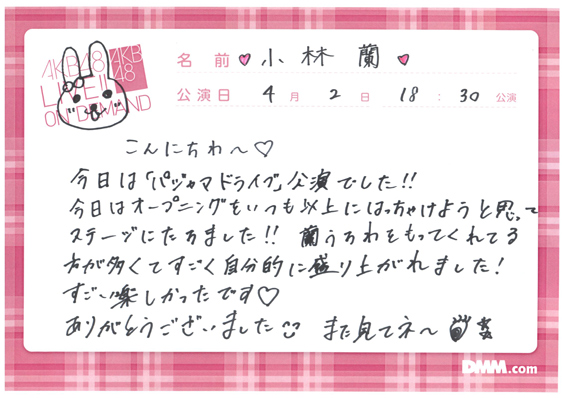 AKB48 AKB48
LIVE!!
ON DEMAND
名前 ♥ 小林蘭 ♥
公演日 4月2日 18:30公演
こんにちわ～♡
今日は「パジャマドライブ」公演でした!!
今日はオープニングをいつも以上にはっちゃけようと思って
ステージにたちました!! 蘭うちわをもってくれてる
方が多くてすごく自分的に盛り上がれました!
すごい楽しかったです♡
ありがとうございました また見てネ～
DMM.com